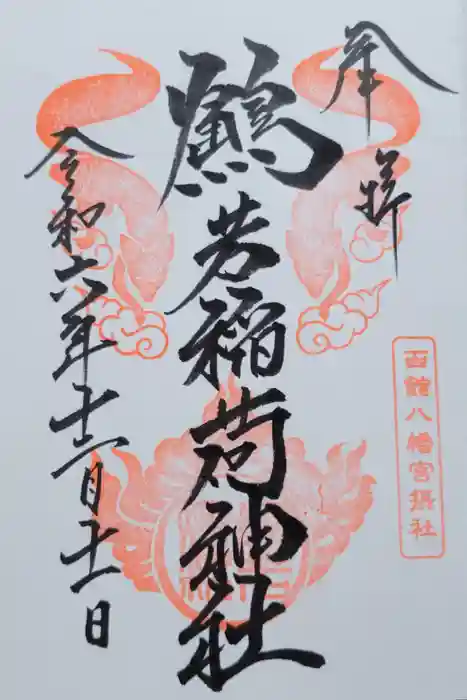 奉拝
函館八幡宮摂社
鶴若稲荷神社
令和六年十一月十一日